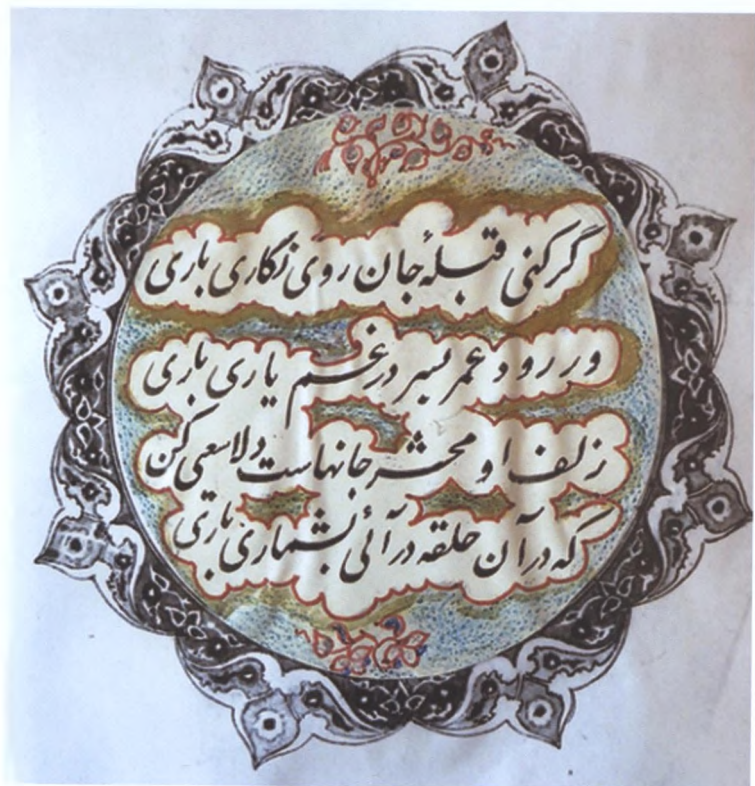 گر کنی قبلهٔ جان روی نگاری باری
ور رود عمر بسر در غم یاری باری
زلف او محشر جانهاست دلا سعی کن
که در آن حلقه در آئی بشماری باری